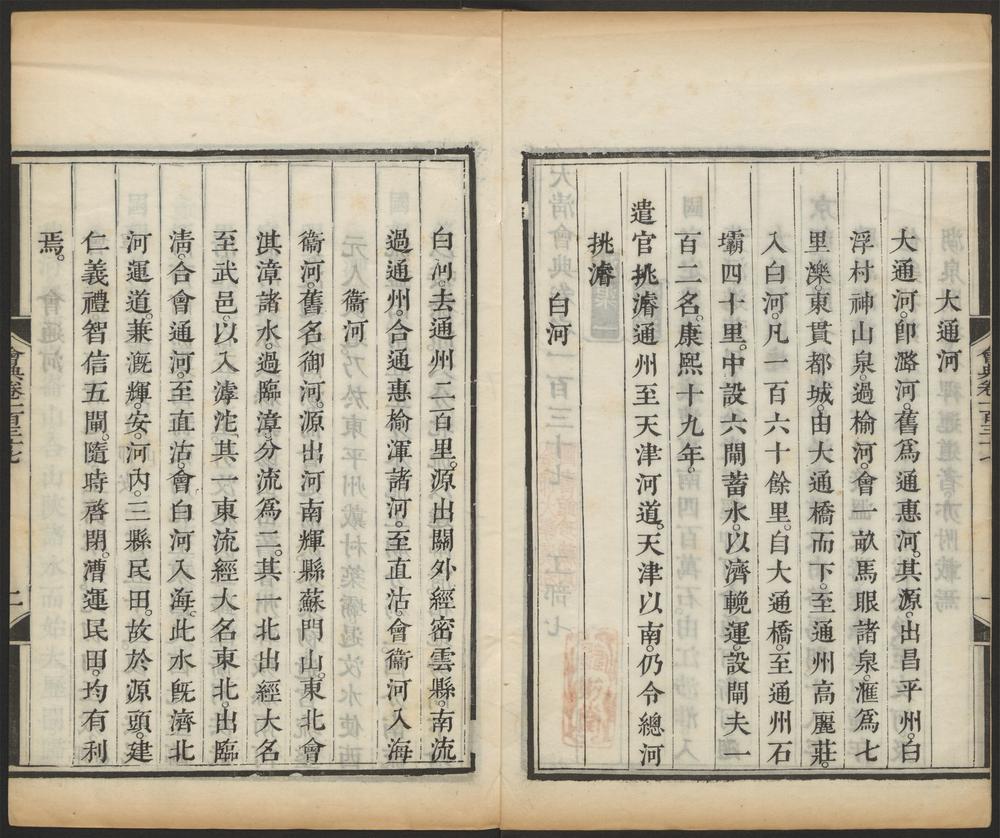 大通河
大通河。卽潞河。舊爲通惠河。其源。出昌平州。白
浮村神山泉。過榆河。會一畝馬眼諸泉。滙爲七
里濼。東貫都城。由大通橋而下。至通州高麗莊。
入白河。凡一百六十餘里。自大通橋。至通州石
壩四十里。中設六閘蓄水。以濟輓運。設閘夫一
百二名。康熙十九年。
遣官挑濬通州至天津河道。天津以南。仍令總河
挑濬
白河
白河。去通州二百里。源出關外。經密雲縣。南流
過通州。合通惠榆渾諸河。至直沽。會衞河入海
衞河
衞河。舊名御河。源出河南輝縣蘇門山。東北會
淇漳諸水。過臨漳。分流爲二。其一北出。經大名
至武邑。以入滹沱。其一東流。經大名東北。出臨
清。合會通河。至直沽。會白河入海。此水旣濟北
河運道。兼漑輝。安。河內。三縣民田。故於源頭。建
仁義禮智信五閘。隨時啓閉。漕運民田。均有利
焉。
會典卷一百三十七
二